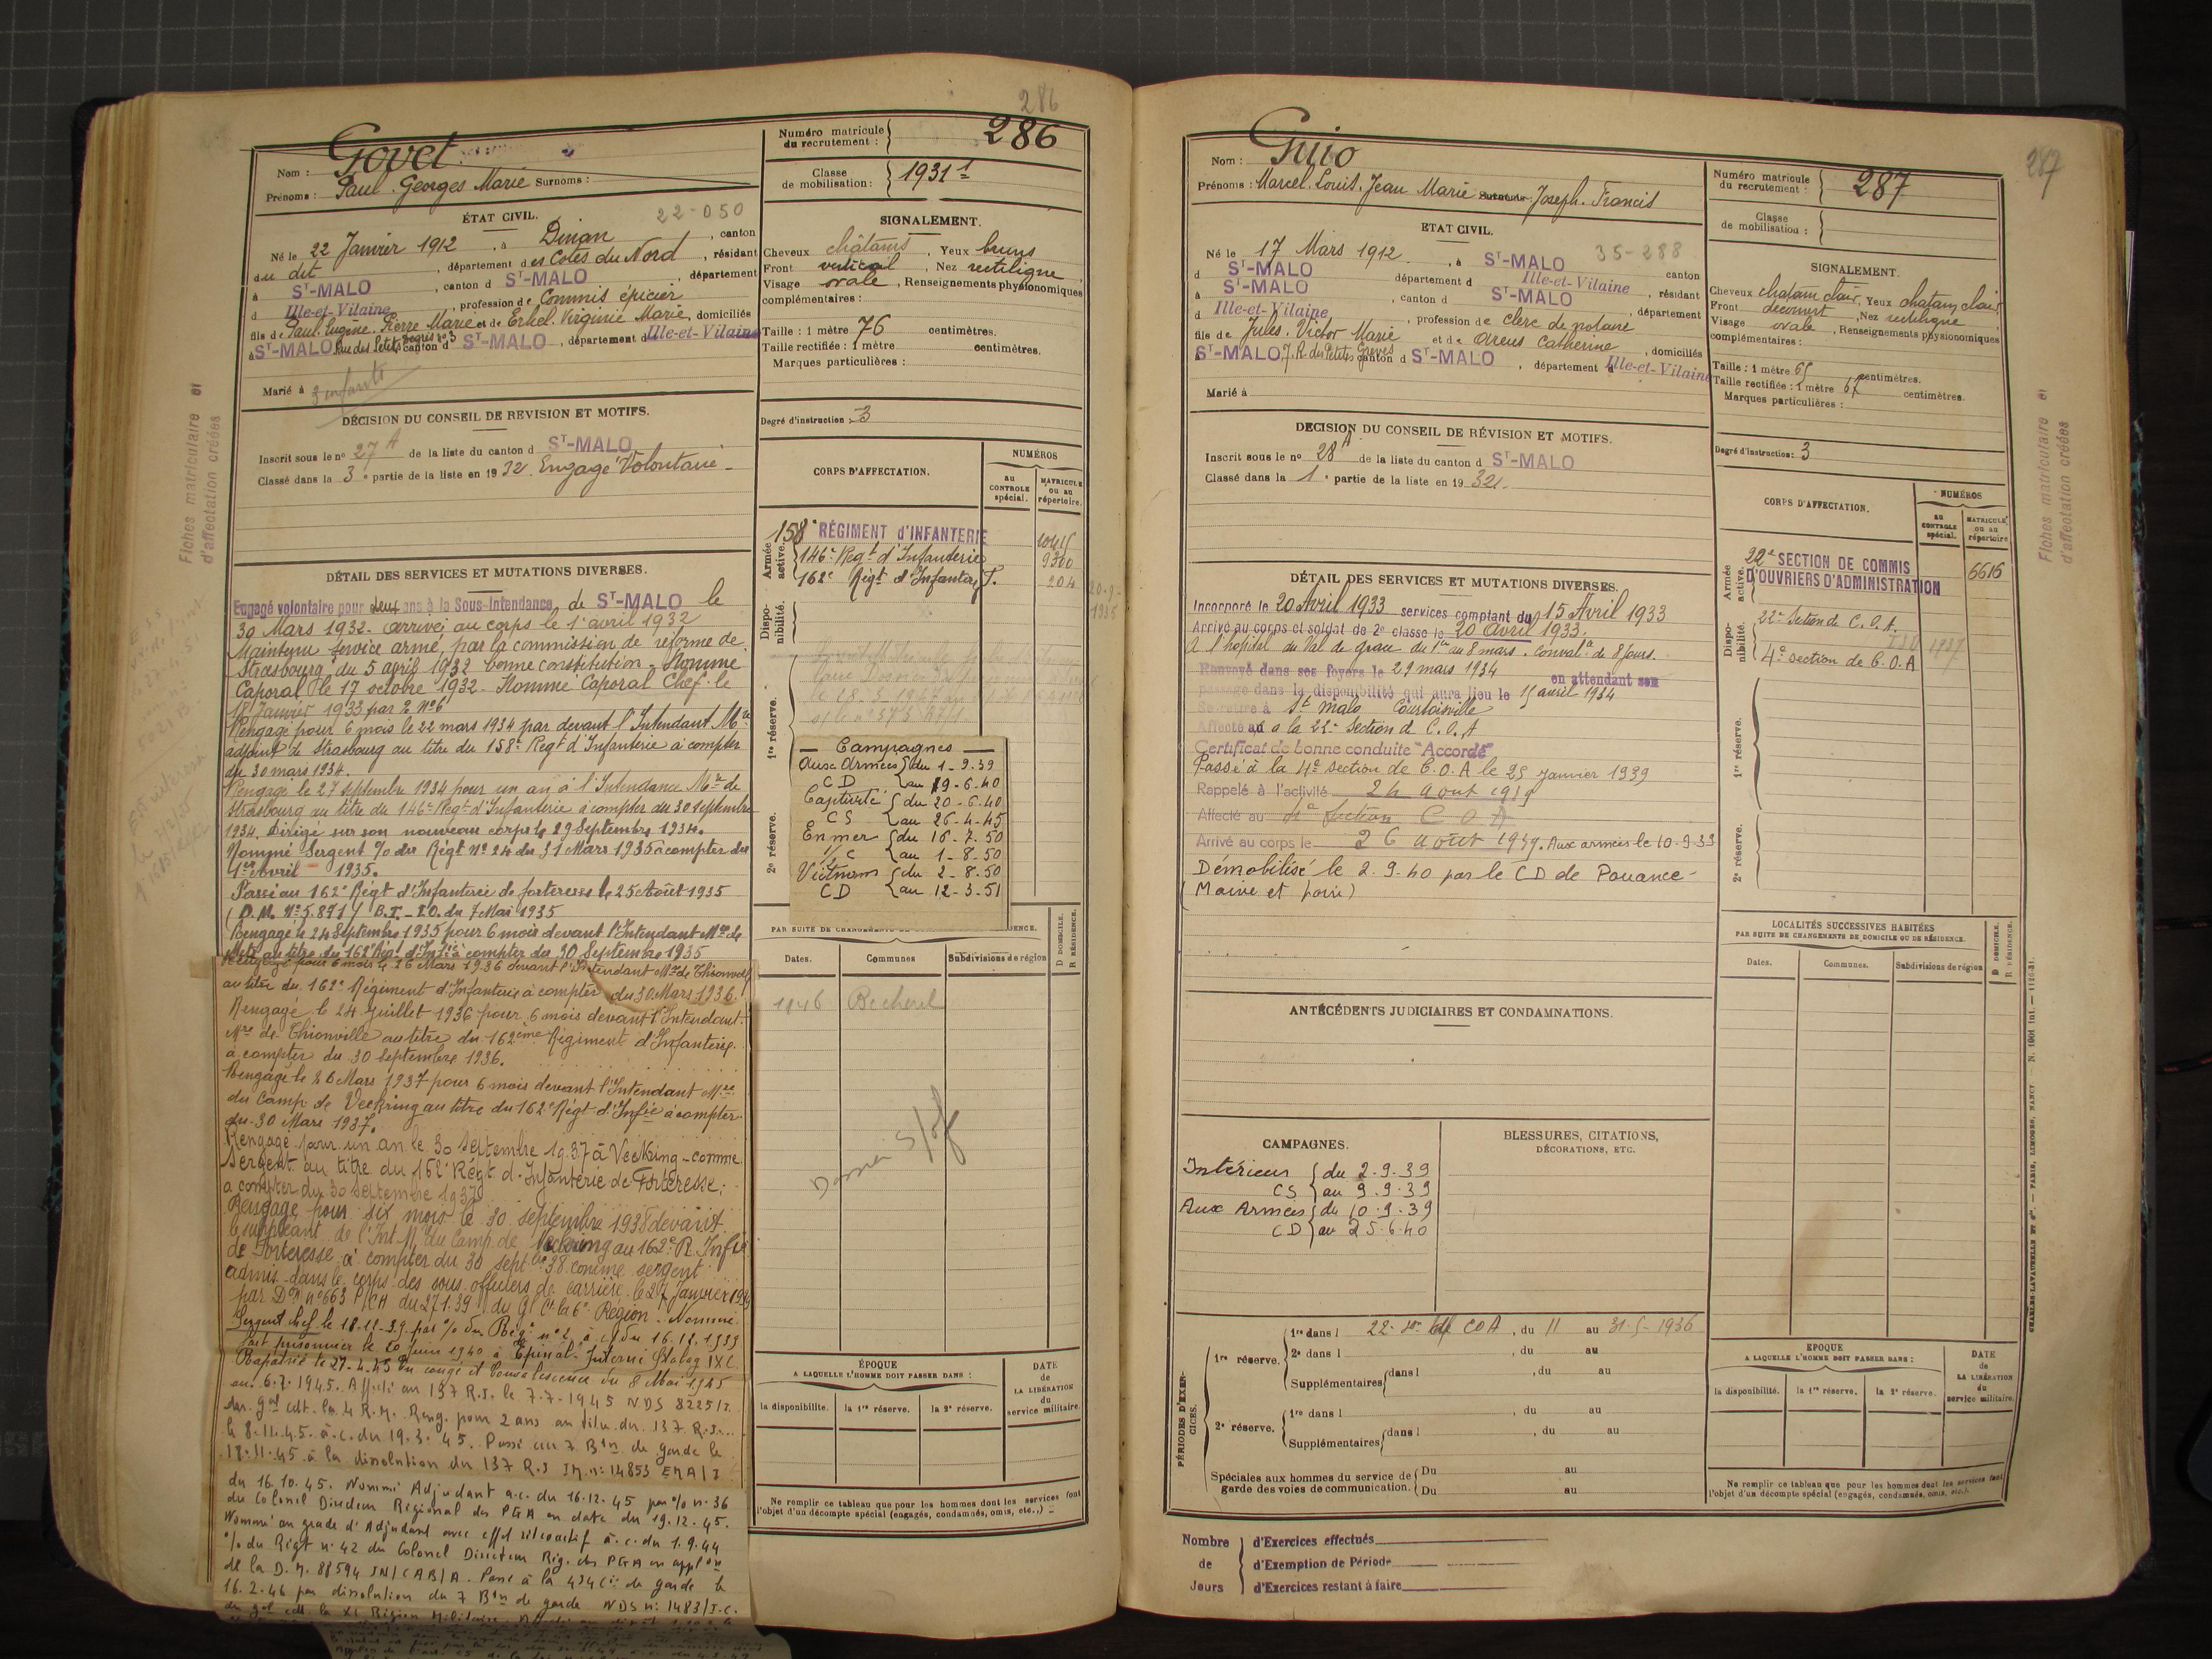 286
Nom : Govet
Prénoms : Paul. Georges Marie Surnoms :
ÉTAT CIVIL.
22-050
Né le 22 Janvier 1912, à Dinan, canton
du dit, département des Côtes du Nord, résidant
à ST-MALO, canton d ST-MALO, département
d Ille-et-Vilaine, profession de Commis épicier
fils de Paul. Eugène. Pierre Marie et de Erhel. Virginie Marie, domiciliés
à ST-MALO Rue des Petits Degrés n° 3 canton d ST-MALO, département d Ille-et-Vilaine
Marié à 3 enfants
DÉCISION DU CONSEIL DE REVISION ET MOTIFS.
Inscrit sous le n° 27 A de la liste du canton d ST-MALO
Classé dans la 3e partie de la liste en 1932. Engagé Volontaire
DÉTAIL DES SERVICES ET MUTATIONS DIVERSES.
Engagé volontaire pour deux ans à la Sous-Intendance, de ST-MALO le
30 Mars 1932. arrivé au corps le 1er avril 1932
Maintenu service armé, par la commission de réforme de
Strasbourg du 5 avril 1932 bonne constitution. Nommé
Caporal le 17 octobre 1932. Nommé Caporal Chef le
18 Janvier 1933 par O n°6
Rengagé pour 6 mois le 22 mars 1934 par devant l'Intendant Mre
adjoint de Strasbourg au titre du 158e Regt d'Infanterie à compter
du 30 mars 1934.
Rengagé le 27 septembre 1934 pour un an à l'Intendance Mre de
Strasbourg au titre du 146e Regt d'Infanterie à compter du 30 septembre
1934. Dirigé sur son nouveau corps le 29 Septembre 1934.
Nommé Sergent % du Régt N° 24 du 31 Mars 1935 à compter du
1er Avril 1935.
Passé au 162e Régt d'Infanterie de forteresse le 25 Août 1935
(D.M. N° 5.891/ B.T.-E.O. du 7 Mai 1935
Rengagé le 24 Septembre 1935 pour 6 mois devant l'Intendant Mre de
Metz au titre du 162e Régt d'Inf.ie à compter du 30 Septembre 1935
Rengagé pour 6 mois le 26 Mars 1936 devant l'Intendant Mre de Thionville
au titre du 162e Régiment d'Infanterie à compter du 30 Mars 1936.
Rengagé le 24 Juillet 1936 pour 6 mois devant l'Intendant
Mre de Thionville au titre du 162ème Régiment d'Infanterie
à compter du 30 septembre 1936.
Rengagé le 26 Mars 1937 pour 6 mois devant l'Intendant Mre
du Camp de Veckring au titre du 162e Régt d'Inf.ie à compter
du 30 Mars 1937.
Rengagé pour un an le 30 septembre 1937 à Veckring - comme
Sergent au titre du 162e Régt d'Infanterie de Forteresse;
à compter du 30 septembre 1937
Rengagé pour six mois le 30 septembre 1938 devant
le suppléant de l'Int Mre du Camp de Veckring au 162e R. Inf.ie
de Forteresse à compter du 30 septbre 38 comme sergent
admis dans le corps des sous officiers de carrière le 27 Janvier 1939
par Don n°663 P/CH du 27.1.39 du Gl Ct la 6e Région. Nommé
Sergent chef le 18.12.39 par % du Rég. n°2 à c/ du 16.12.1939
Fait prisonnier le 20 juin 1940 à Epinal. Interné Stalag IX C.
Rapatrié le 27.4.45 En congé et Convalescence du 8 Mai 1945
au 6.7.1945. Affecté au 137 R.I. le 7.7.1945 NDS 8225/2
du gal cdt. la 4 R.M. Reng. pour 2 ans au titre du 137 R.I.
le 8.11.45. à.c. du 19.3.45. Passé au 7 Btn de garde le
18.11.45 à la dissolution du 137 R.I IM. n: 14853 EMA/I
du 16.10.45. Nommé Adjudant a.c. du 16.12.45 par % n: 36
du Colonel Directeur Régional des PGA en date du 19.12.45.
Nommé au grade d'Adjudant avec effet rétroactif à.c. du 1.9.44
% du Régt n: 42 du Colonel Directeur Rég. des PGA en applon
de la D.M. 88594 IN/CAB/A. Passé à la 434 Cie de garde le
16.2.46 par dissolution du 7 Btn de garde NDS n: 1483/I.C.
du gal cdt la XI Région Militaire.
Fiches matriculaire et
d'affectation créées
Numéro matricule
du recrutement : 286
Classe
de mobilisation : 1931 1
SIGNALEMENT.
Cheveux châtains, Yeux bruns
Front vertical, Nez rectiligne
Visage ovale, Renseignements physionomiques
complémentaires :
Taille : 1 mètre 76 centimètres.
Taille rectifiée : 1 mètre centimètres.
Marques particulières :
Degré d'instruction : 3
CORPS D'AFFECTATION.
NUMÉROS
AU CONTROLE spécial.
MATRICULE ou au répertoire.
Armée active.
158e RÉGIMENT d'INFANTERIE
146e Regt d'Infanterie 9300
162e Régt d'Infanterie F. 204
20-9-1935
Dispo-
nibilité.
1re réserve.
2e réserve.
Campagnes
Aux Armées du 1-9-39
CD au 19-6-40
Captivité du 20-6-40
CS au 26-4-45
En mer du 16-7-50
1/2 C au 1-8-50
Vietnam du 2-8-50
CD au 12-3-51
PAR SUITE DE CHANGEMENTS DE
Dates. Communes Subdivisions de région D DOMICILE. R RÉSIDENCE.
1946 Becherel
ÉPOQUE
A LAQUELLE L'HOMME DOIT PASSER DANS :
DATE
de
LA LIBÉRATION
du
service militaire
la disponibilité. la 1re réserve. la 2e réserve.
Ne remplir ce tableau que pour les hommes dont les services font
l'objet d'un décompte spécial (engagés, condamnés, omis, etc.,)
287
Nom : Guio
Prénoms : Marcel. Louis. Jean Marie Surnoms: Joseph. Francis
ETAT CIVIL.
35-288
Né le 17 Mars 1912, à ST-MALO canton
d ST-MALO département d Ille-et-Vilaine, résidant
à ST-MALO, canton d ST-MALO, département
d Ille-et-Vilaine, profession de clerc de notaire
fils de Jules. Victor Marie et de Areus Catherine, domiciliés
ST-MALO, 7. R. des Petites Grèves canton d ST-MALO, département d Ille-et-Vilaine
Marié à
DECISION DU CONSEIL DE RÉVISION ET MOTIFS.
Inscrit sous le n° 28 A de la liste du canton d ST-MALO
Classé dans la 1e partie de la liste en 1932.
DÉTAIL DES SERVICES ET MUTATIONS DIVERSES.
Incorporé le 20 Avril 1933 services comptant du 15 Avril 1933
Arrivé au corps et soldat de 2e classe le 20 Avril 1933.
A l'hopital du Val de grace du 1er au 8 mars. Convalce de 8 jours.
Renvoyé dans ses foyers le 29 mars 1934 en attendant son
passage dans la disponibilité qui aura lieu le 15 avril 1934
Se retire à St Malo Courtoisville
Affecté à la 22e Section de C.O.A
Certificat de bonne conduite "Accordé"
Passé à la 4e section de C.O.A le 25 Janvier 1939
Rappelé à l'activité 24 aout 1939
Affecté au 4e section C O A
Arrivé au corps le 26 août 1939. Aux armées le 10-9-39
Démobilisé le 2.9.40 par le CD de Pouancé
(Maine et Loire)
ANTÉCÉDENTS JUDICIAIRES ET CONDAMNATIONS.
CAMPAGNES.
Intérieur du 2.9.39
CS au 9.9.39
Aux Armées du 10.9.39
CD au 25.6.40
BLESSURES, CITATIONS,
DÉCORATIONS, ETC.
PÉRIODES D'EXERCICES.
1re réserve. 1re dans l 22e Son de COA, du 11 au 31-5-1936
2e dans l , du au
Supplémentaires dans l , du au
2e réserve. 1re dans l , du au
Supplémentaires dans l , du au
Spéciales aux hommes du service de
garde des voies de communication. Du au
Du au
Nombre de Jours
d'Exercices effectués
d'Exemption de Période
d'Exercices restant à faire
Numéro matricule
du recrutement : 287
Classe
de mobilisation :
SIGNALEMENT.
Cheveux chatain clair, Yeux chatain clair
Front découvert, Nez rectiligne
Visage ovale, Renseignements physionomiques
complémentaires :
Taille : 1 mètre 65 centimètres.
Taille rectifiée : 1 mètre 67 centimètres.
Marques particulières :
Degré d'instruction : 3
CORPS D'AFFECTATION.
NUMÉROS
AU CONTROLE spécial.
MATRICULE ou au répertoire
Armée active.
22e SECTION DE COMMIS
D'OUVRIERS D'ADMINISTRATION 6616
Dispo-
nibilité.
22e Section de C.O.A. 1937
4e section de C.O.A
1re réserve.
2e réserve.
LOCALITÉS SUCCESSIVES HABITÉES
PAR SUITE DE CHANGEMENTS DE DOMICILE OU DE RÉSIDENCE.
Dates. Communes. Subdivisions de région D DOMICILE. R RÉSIDENCE.
EPOQUE
A LAQUELLE L'HOMME DOIT PASSER DANS :
DATE
de
LA LIBÉRATION
du
service militaire
la disponibilité. la 1re réserve. la 2e réserve.
Ne remplir ce tableau que pour les hommes dont les services font
l'objet d'un décompte spécial (engagés, condamnés, omis, etc.).
Fiches matriculaire et
d'affectation créées
CHARLES-LAVAUZELLE ET Cie. — PARIS, LIMOGES, NANCY